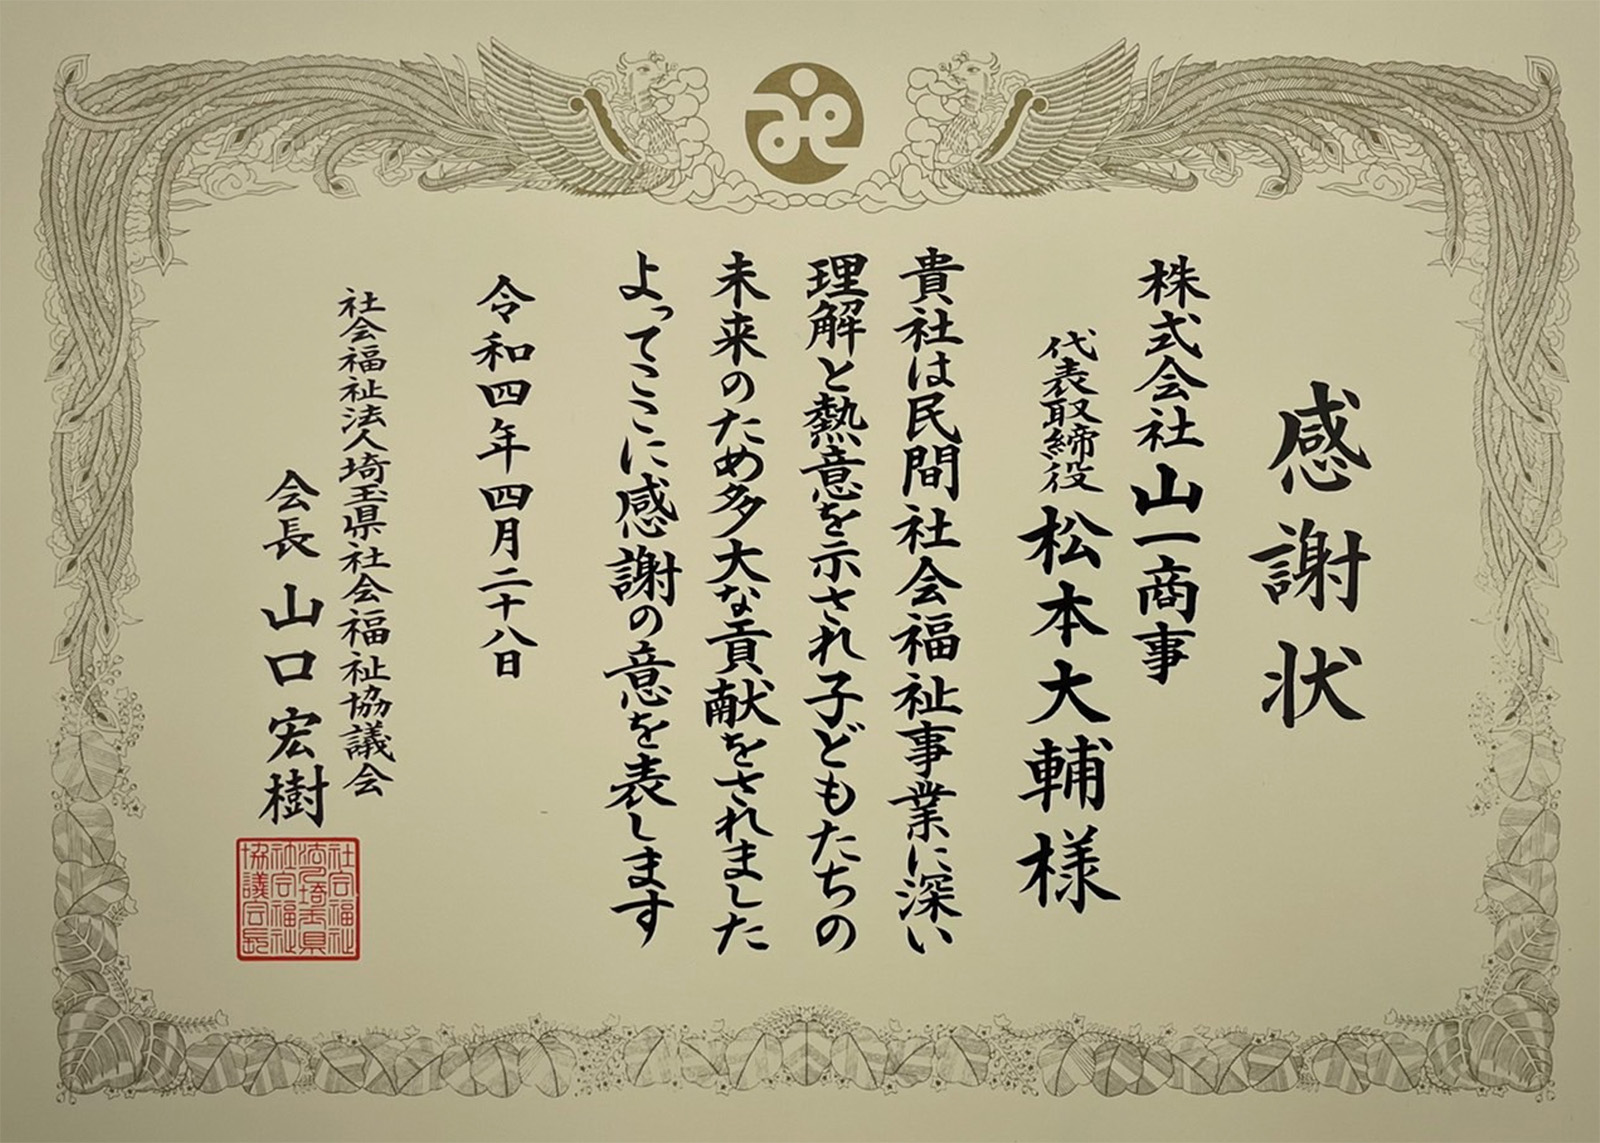 感謝状
株式会社山一商事
代表取締役 松本大輔様
貴社は民間社会福祉事業に深い
理解と熱意を示され子どもたちの
未来のため多大な貢献をされました
よってここに感謝の意を表します
令和四年四月二十八日
社会福祉法人埼玉県社会福祉協議会
会長 山口宏樹
社会福祉
法人埼玉県
社会福祉
協議会長